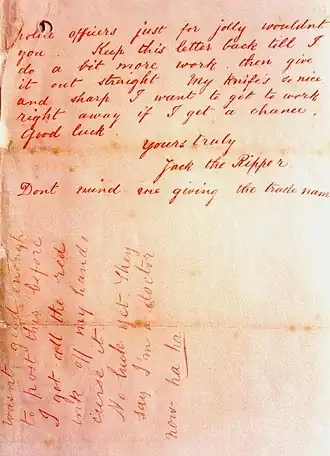 police officers just for jolly wouldnt
you. Keep this letter back till I
do a bit more work. then give
it out straight. My knife's so nice
and sharp I want to get to work
right away if I get a chance.
Good luck.
Yours truly
Jack the Ripper
Dont mind me giving the trade name
wasnt good enough
to post this before
I got all the red
ink off my hands
curse it
No luck yet. They
say I'm a doctor
now ha ha